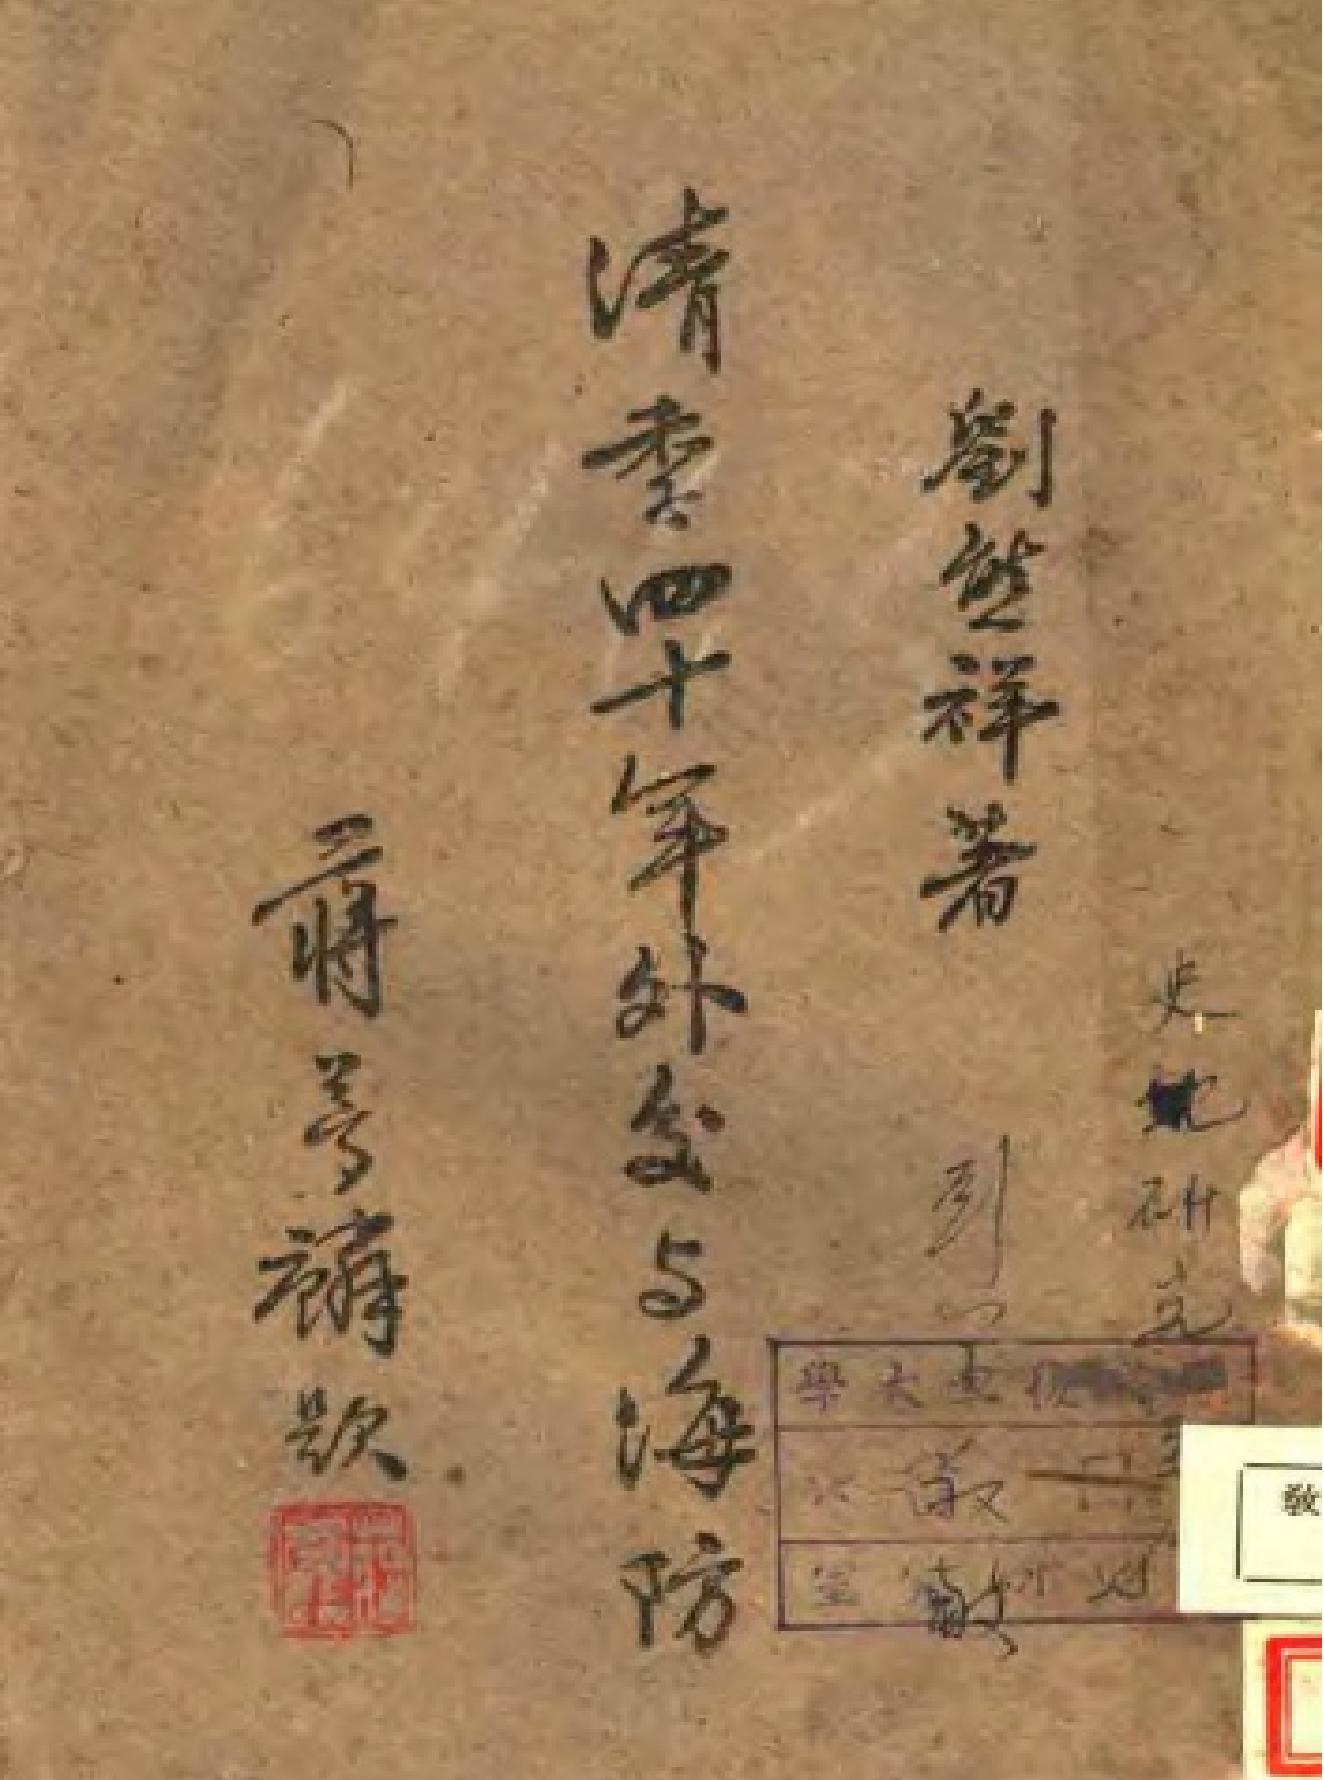 史地研究
劉熊祥著
清季四十年外交与海防
蔣夢麟題
學大
室
敬